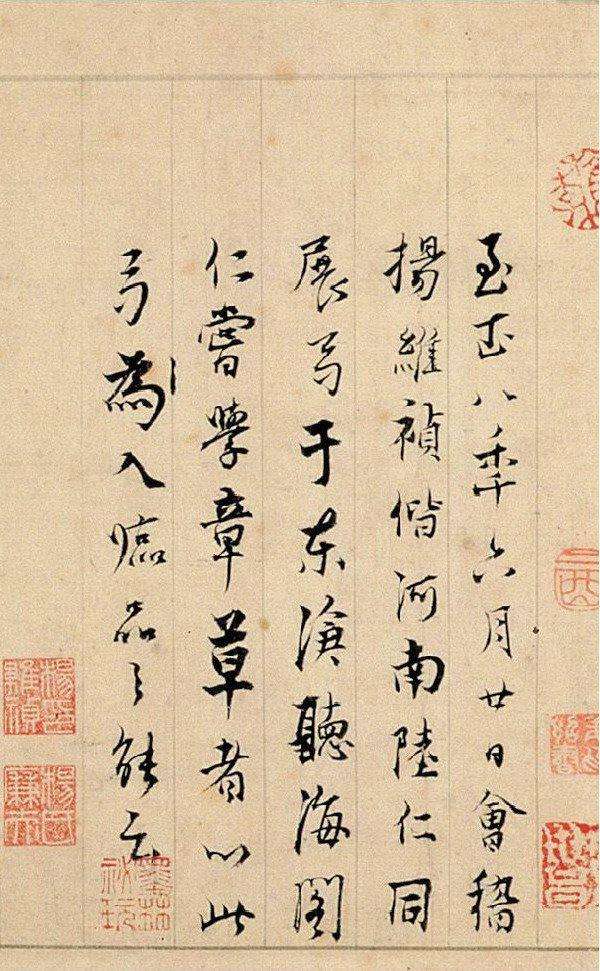 至正八秊六月廿日會稽
揚維禎偕河南陸仁同
展卷于東滄聽海閣
仁嘗學章草者以此
卷為入臨品之能云